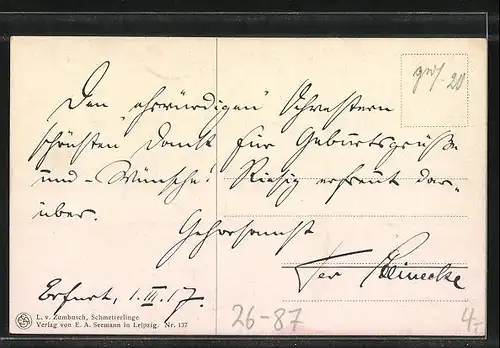 ges. 20
Den "ehrwürdigen" Schwestern
schönsten Dank für Geburtsgrüße
und - Wünsche! Riesig erfreut dar-
über.
Gehorsamst
Reinecke
Erfurt, 1. III. 17.
L. v. Zumbusch, Schmetterlinge
Verlag von E. A. Seemann in Leipzig. Nr. 137
26-87
4,-